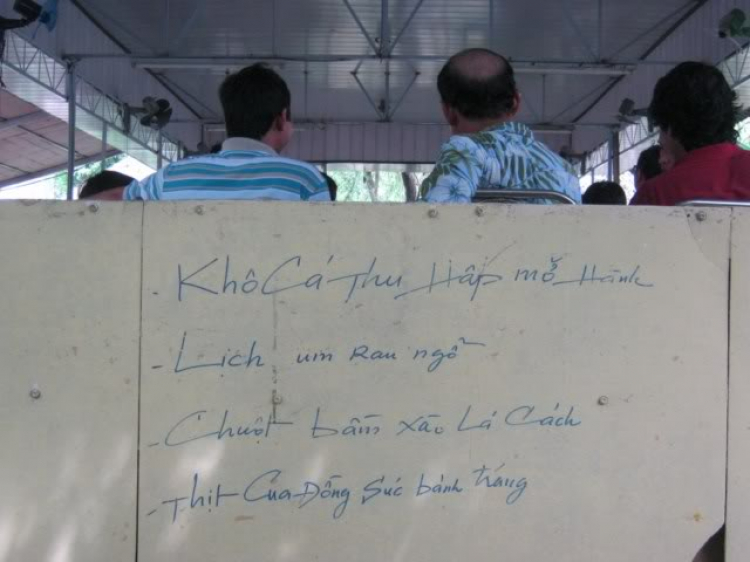 - Khô Cá Thu Hấp mỡ Hành
- Lịch um Rau ngổ
- Chuột bằm xào Lá Cách
- Thịt Cua Đồng Súc bánh tráng